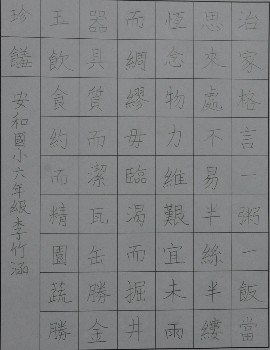 治家格言一粥一飯當
思來處不易半絲半縷
恆念物力維艱宜未雨
而綢繆毋臨渴而掘井
器具質而潔瓦缶勝金
玉飲食約而精園蔬勝
珍饈
安和國小六年級李竹涵